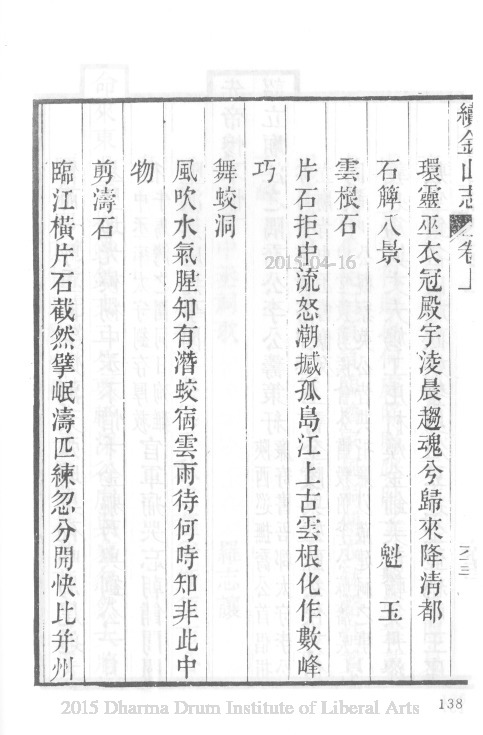 續金山志 卷上
環靈巫衣冠殿宇淩晨趨魂兮歸來降清都
石簰八景 魁玉
雲根石
片石拒中流怒潮撼孤島江上古雲根化作數峰
巧
舞蛟洞
風吹水氣腥知有潛蛟宿雲雨待何時知非此中
物
剪濤石
臨江橫片石截然擘岷濤匹練忽分開快比并州
2015-04-16
138
2015 Dharma Drum Institute of Liberal Arts